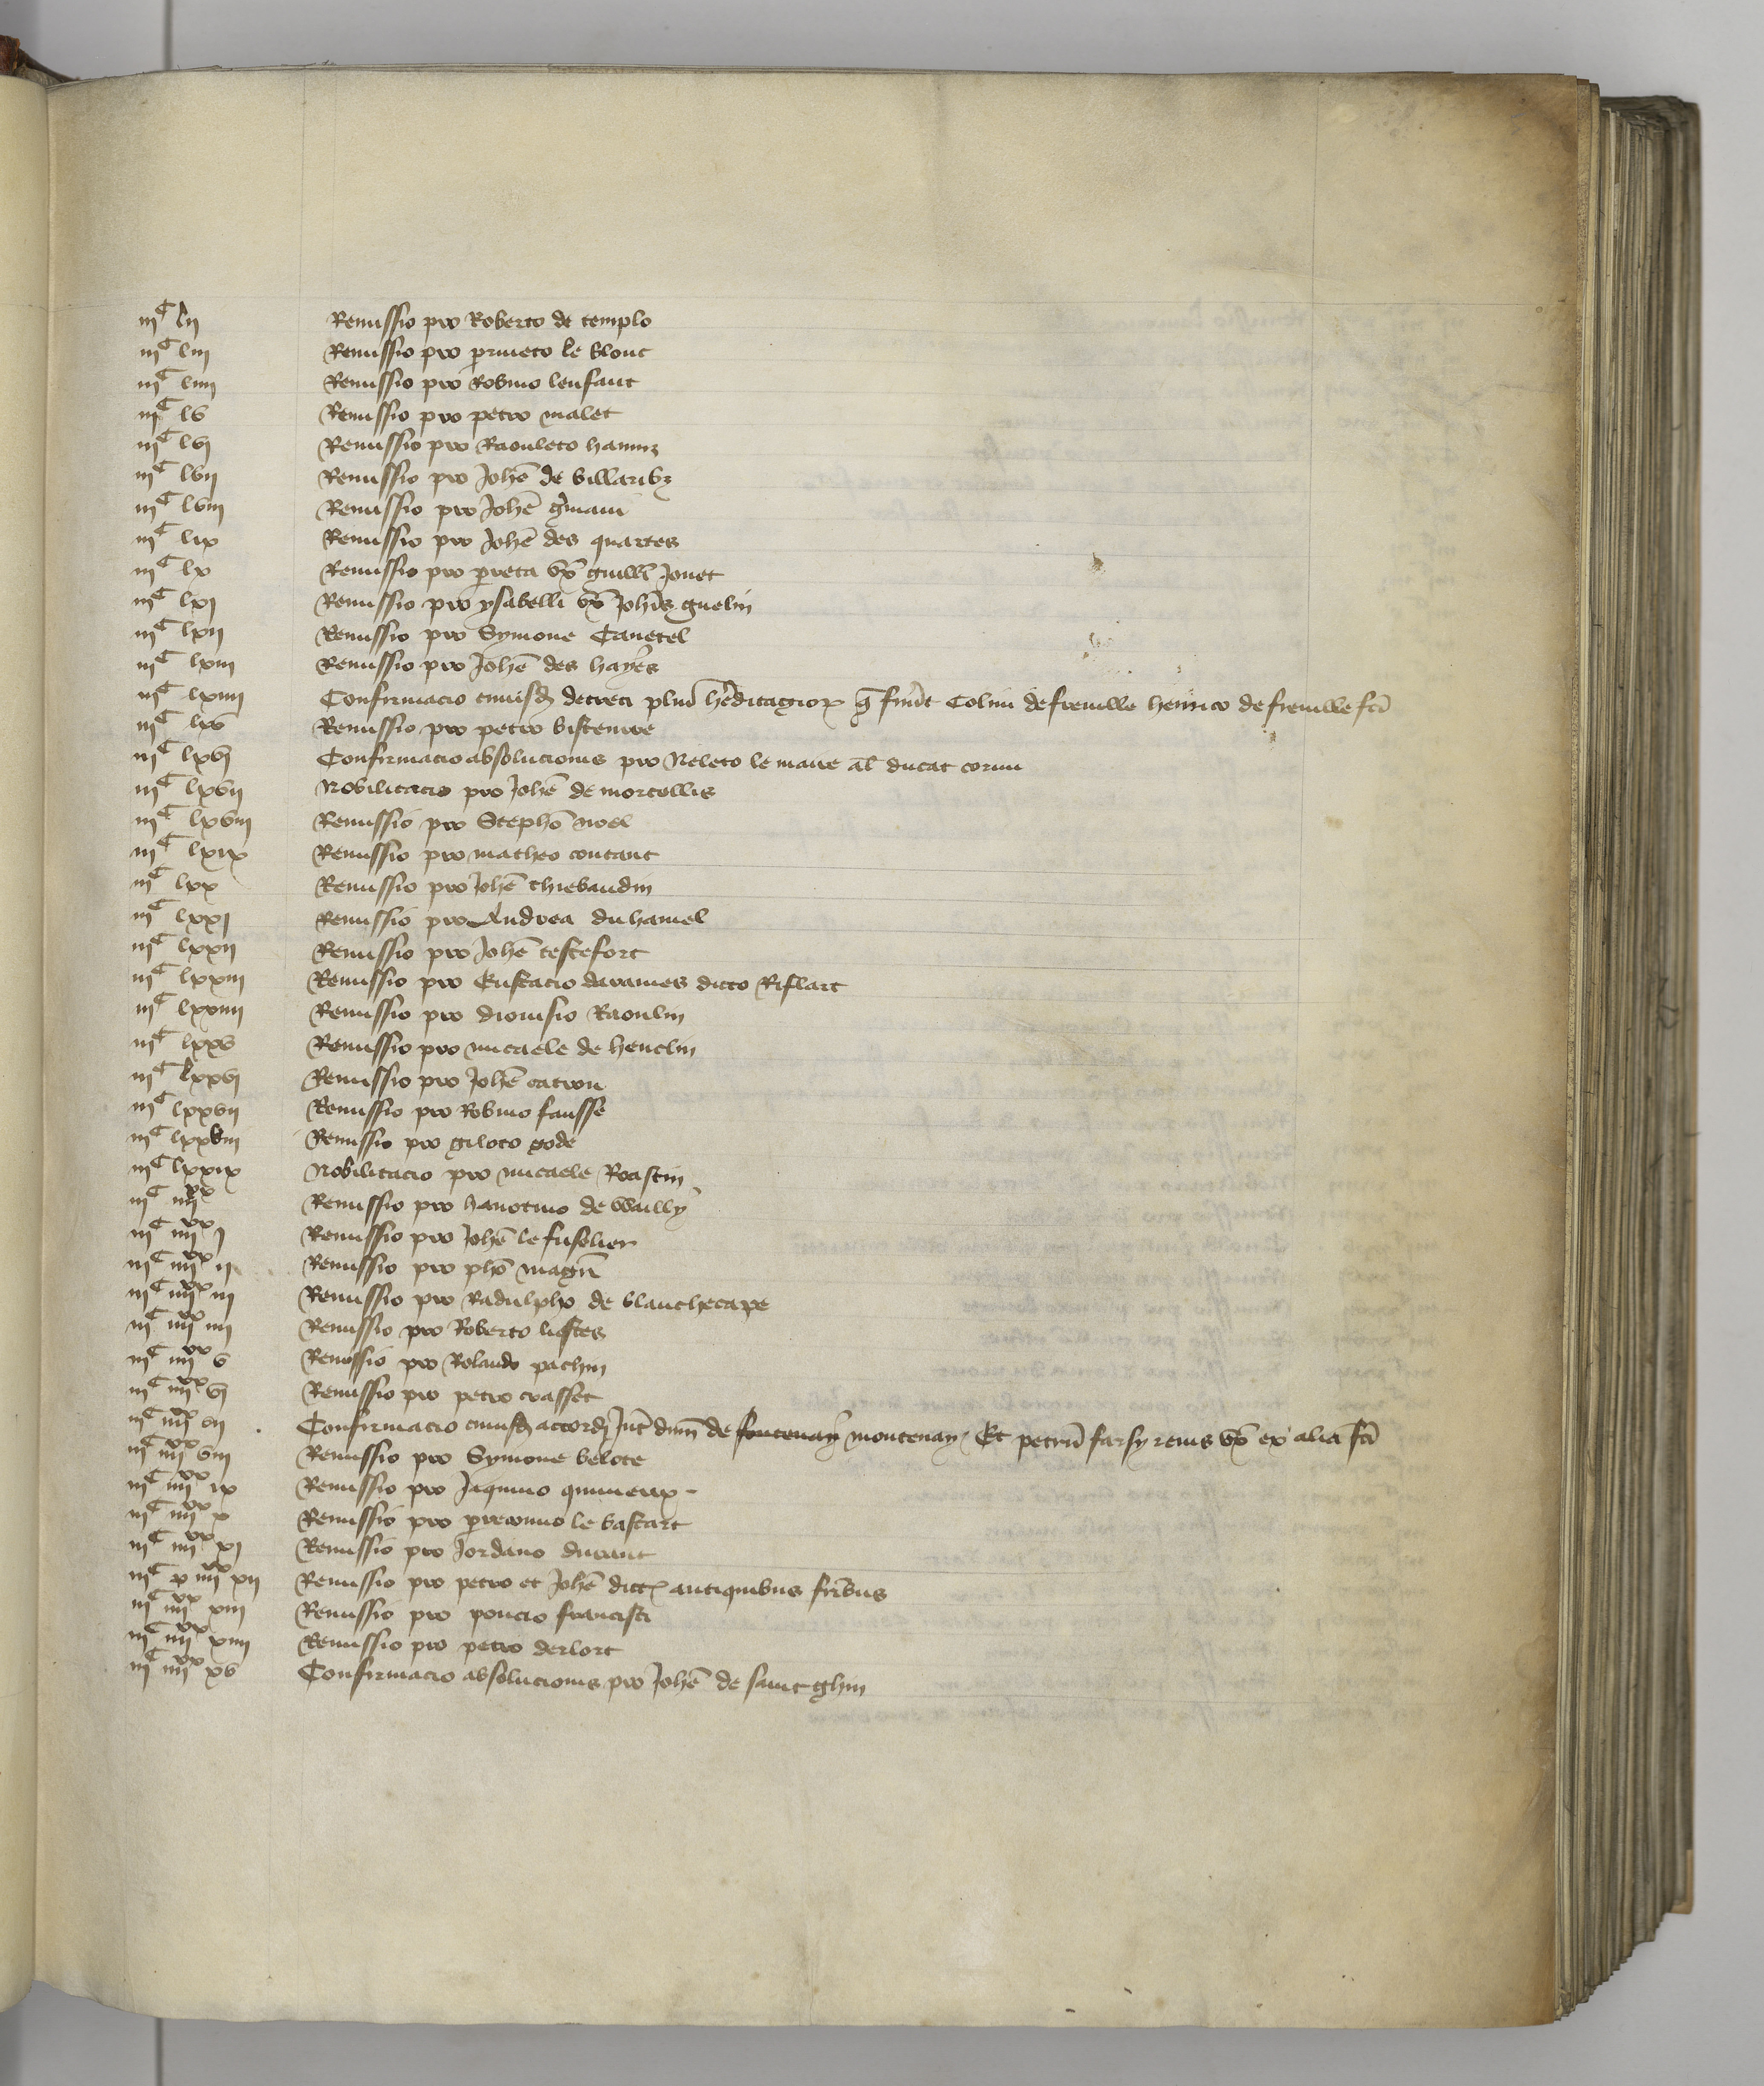 iijᶜ lij Remissio pro Roberto de templo
iijᶜ liij Remissio pro perrineto le blont
iijᶜ liiij Remissio pro Robino lenfant
iijᶜ lv Remissio pro petro malet
iijᶜ lvj Remissio pro Raouleto
iijᶜ lvij Remissio pro Johē de villaribꝫ
iijᶜ lviij Remissio pro Johē gmani
iijᶜ lix Remissio pro Johē des quartes
iijᶜ lx Remissio pro perreta vx̄ guillī Jouet
iijᶜ lxj Remissio pro ysabelli vx̄ Johīs guelin
iijᶜ lxij Remissio pro Symone Canetel
iijᶜ lxiij Remissio pro Johē des hayes
iijᶜ lxiiij Confirmacio cuiusd decreti pluīū hēditagioꝝ q̄ fuerūt Colini de freuille henrico de freuille fcī
iijᶜ lxv Remissio pro petro
iijᶜ lxvj Confirmacio absolucionis pro Neleto le maire al ducat
iijᶜ lxvij Nobilitacio pro Johē de morcellis
iijᶜ lxviij Remissio pro Stephō noel
iijᶜ lxix Remissio pro matheo contant
iijᶜ lxx Remissio pro Johē thiebaudin
iijᶜ lxxj Remissio pro Andrea du hamel
iijᶜ lxxij Remissio pro Johē testefort
iijᶜ lxxiij Remissio pro Eustacio davaines dicto Riflart
iijᶜ lxxiiij Remissio pro dionisio Raoulin
iijᶜ lxxv Remissio pro micaele de henclin
iijᶜ lxxvj Remissio pro Johē catron
iijᶜ lxxvij Remissio pro Robino fausse
iijᶜ lxxviij Remissio pro giloto gode
iijᶜ lxxix Nobilitacio pro micaele Roastin
iijᶜ iiijˣˣ Remissio pro hanotino de wailly
iijᶜ iiijˣˣ j Remissio pro Johē le fuselier
iijᶜ iiijˣˣ ij Remissio pro phō magrī
iijᶜ iiijˣˣ iij Remissio pro Radulpho de blanchecape
iijᶜ iiijˣˣ iiij Remissio pro Roberto listes
iijᶜ iiijˣˣ v Remissio pro Rolando pachin
iijᶜ iiijˣˣ vj Remissio pro petro crasset
iijᶜ iiijˣˣ vij Confirmacio cuiusd accordi Int̄ dnm̄ de fontenay montenay Et petrū farsy eius vx̄ ex alia fcī
iijᶜ iiijˣˣ viij Remissio pro Symone belote
iijᶜ iiijˣˣ ix Remissio pro Jaquino quinieux
iijᶜ iiijˣˣ x Remissio pro perronno le bastart
iijᶜ iiijˣˣ xj Remissio pro Jordano durant
iijᶜ x iiijˣˣ xij Remissio pro petro et Johē dictꝭ antiquibus frībus
iijᶜ iiijˣˣ xiij Remissio pro poncio francisci
iijᶜ iiijˣˣ xiiij Remissio pro petro derlort
iijᶜ iiijˣˣ xv Confirmacio absolucionis pro Johē de saint ghin